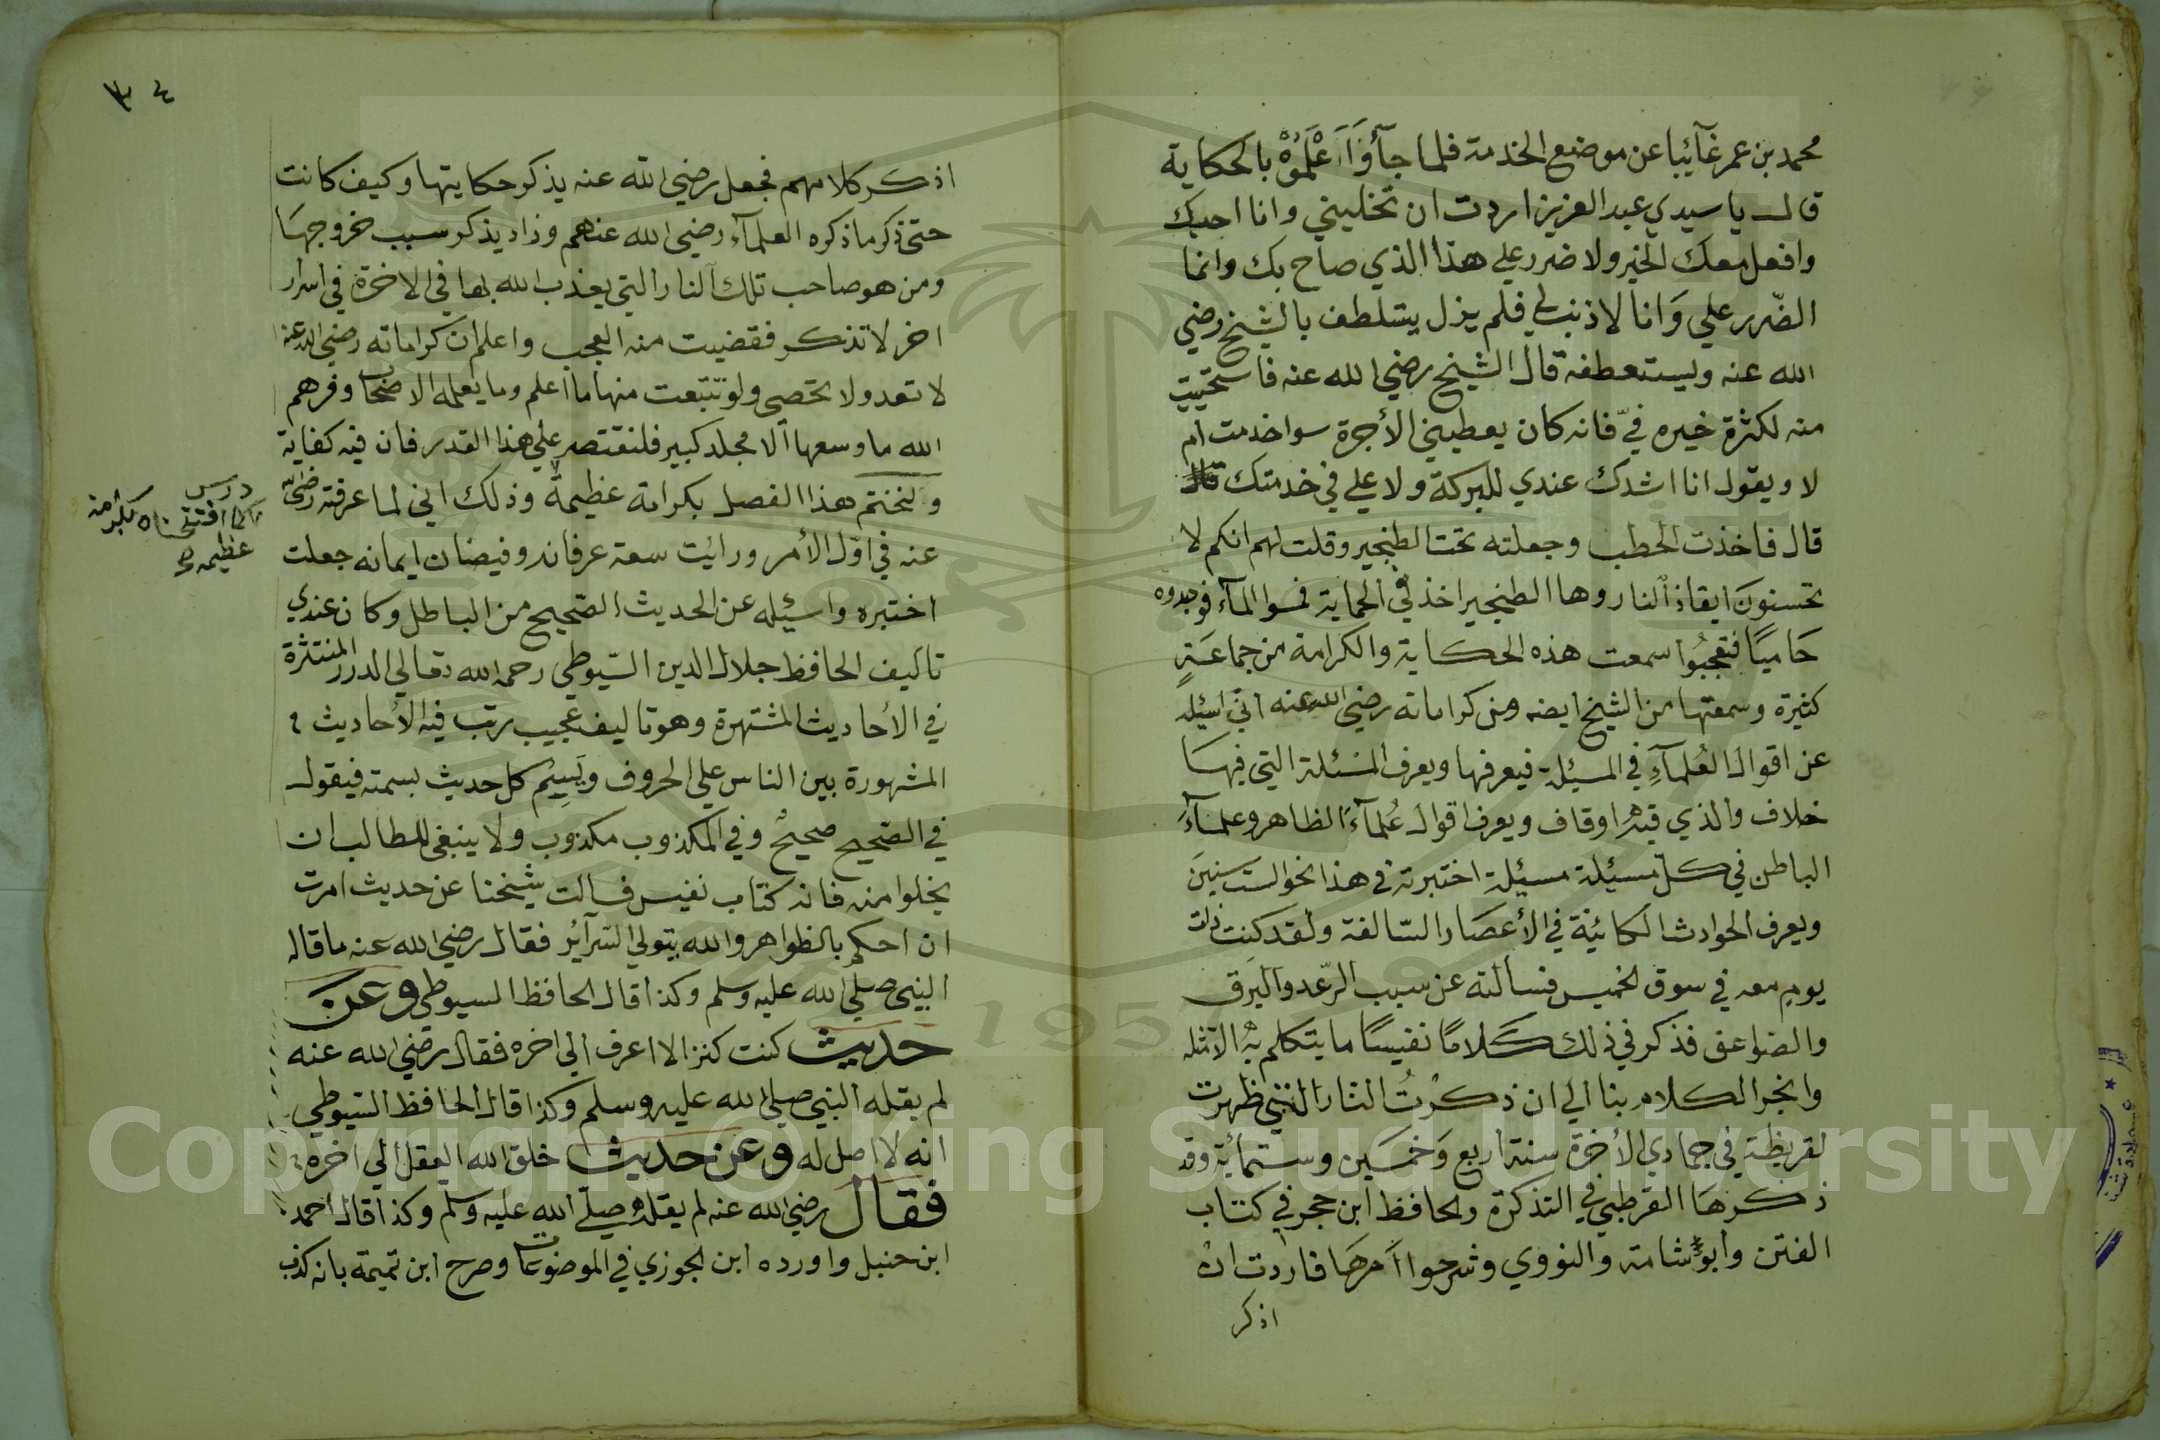 محمد بن عمر غآئبا عن موضع الخدمة فلما جآؤا اَعْلَمُوْهُ بالحكاية
قال يا سيدي عبد العزيز اردت ان تخليني وانا احبك
وافعل معك الخير ولا ضرر علي هذا الذي صاح بك وانما
الضّرر علي وَانا لا ذنب لي فلم يزل يتلطف بالشيخ رضي
الله عنه ويستعطفه قال الشيخ رضي الله عنه فاستحييت
منه لكثرة خيره فيّ فانه كان يعطيني الأجرة سوا خدمت ام
لا ويقول انا اشدك عندي للبركة ولا علي في خدمتك
قال فاخذت الحطب وجعلته تحت الطنجير وقلت لهم انكم لا
تحسنونَ ايقاذ النار وها الطنجير اخذ في الحماية فمسوا المآء فوجدوه
حَاميًا فتعجبُوا سمعت هذه الحكاية والكرامة من جماعَةٍ
كثيرة وسمعتها من الشيخ ايضه ومن كراماته رضي الله عنه اني اسئله
عن اقوال العُلمآءِ في المسئلة فيعرفها ويعرف المسئلة التي فيهَا
خلاف والذي فيها وفاق ويعرف اقوال عُلمآء الظاهر وعلمآء
الباطن في كلّ مسئيلة مسئيلة اختبرته في هذا نحو الست سنينَ
ويعرف الحوادث الكائنة في الأعصَار السّالفة ولقد كنت ذات
يومٍ معه في سوق الخميس فسألته عن سبب الرّعد والبَرق
والصّواعق فذكر في ذلك كَلامًا نفيسًا ما يتكلم به الا مثله
وانجر الكلام بنا الي ان ذكرْتُ النار التي ظهرت
لقريظة في جمادي الأخرة سنة اربع وَخمسَين وستمائة وقد
ذكرهَا القرطبي في التذكرة والحافظ ابن حجر في كتاب
الفتن وابو شامة والنووي وشرحوا اَمرهَا فاردت ان
اذكر
٣٤
اذكر كلامهم فجعل رضي الله عنه يذكر حكايتها وكيف كانت
حتى ذكر ما ذكره العلمآء رضي الله عنهم وزاد يذكر سبب خروجهَا
ومن هو صاحب تلك النار التي يعذب الله بها في الاخرة في اسرار
اخر لا تذكر فقضيت منه العجب واعلم ان كراماته رضي الله عنه
لا تعد ولا تحصى ولو تتبعت منها ما اعلم وما يعلمه الاصحاب وفرهم
الله ما وسعها الا مجلد كبير فلنقتصر علي هذا القدر فان فيه كفاية
ولنختم هذا الفصل بكرامة عظيمة وذلك اني لما عرفته رضي الله
عنه في اوّل الأمر ورائت سعة عرفانه وفيضان ايمانه جعلت
اختبره واسئيله عن الحديث الصّحيح من الباطل وكان عندي
تاليف الحافظ جلال الدين السّيوطي رحمه الله تعالي الدرر المنتثرة
في الأحاديث المشتهرة وهو تاليف عجيب رتب فيه الأحاديث
المشهورة بين الناس علي الحروف ويَسِيُم كل حديث بسمته فيقول
في الصّحيح صحيحٌ وفي المكذوب مكذوب ولا ينبغي للطالب ان
يخلوا منه فانه كتاب نفيس فسالت شيخنا عن حديث امرت
ان احكم بالظواهر والله يتولي السّرآئر فقال رضي الله عنه ما قاله
النبي صلي الله عليه وسلم وكذا قال الحافظ السيوطي وعن
حديث كنت كنزا لا اعرف الي اخره فقال رضي الله عنه
لم يقله النبي صلي الله عليه وسلم وكذا قال الحافظ السّيوطي
انه لا اصل له وعن حديث خلق الله العقل الي اخره
فقال رضي الله عنه لم يقله صلّي الله عليه وسلم وكذا قال احمد
ابن حنبل واورده ابن الجوزي في الموضوعات وصرح ابن تميمة بانه كذب
كما افتتحناه بكرامة
عظيمة
Copyright © King Saud University
1957